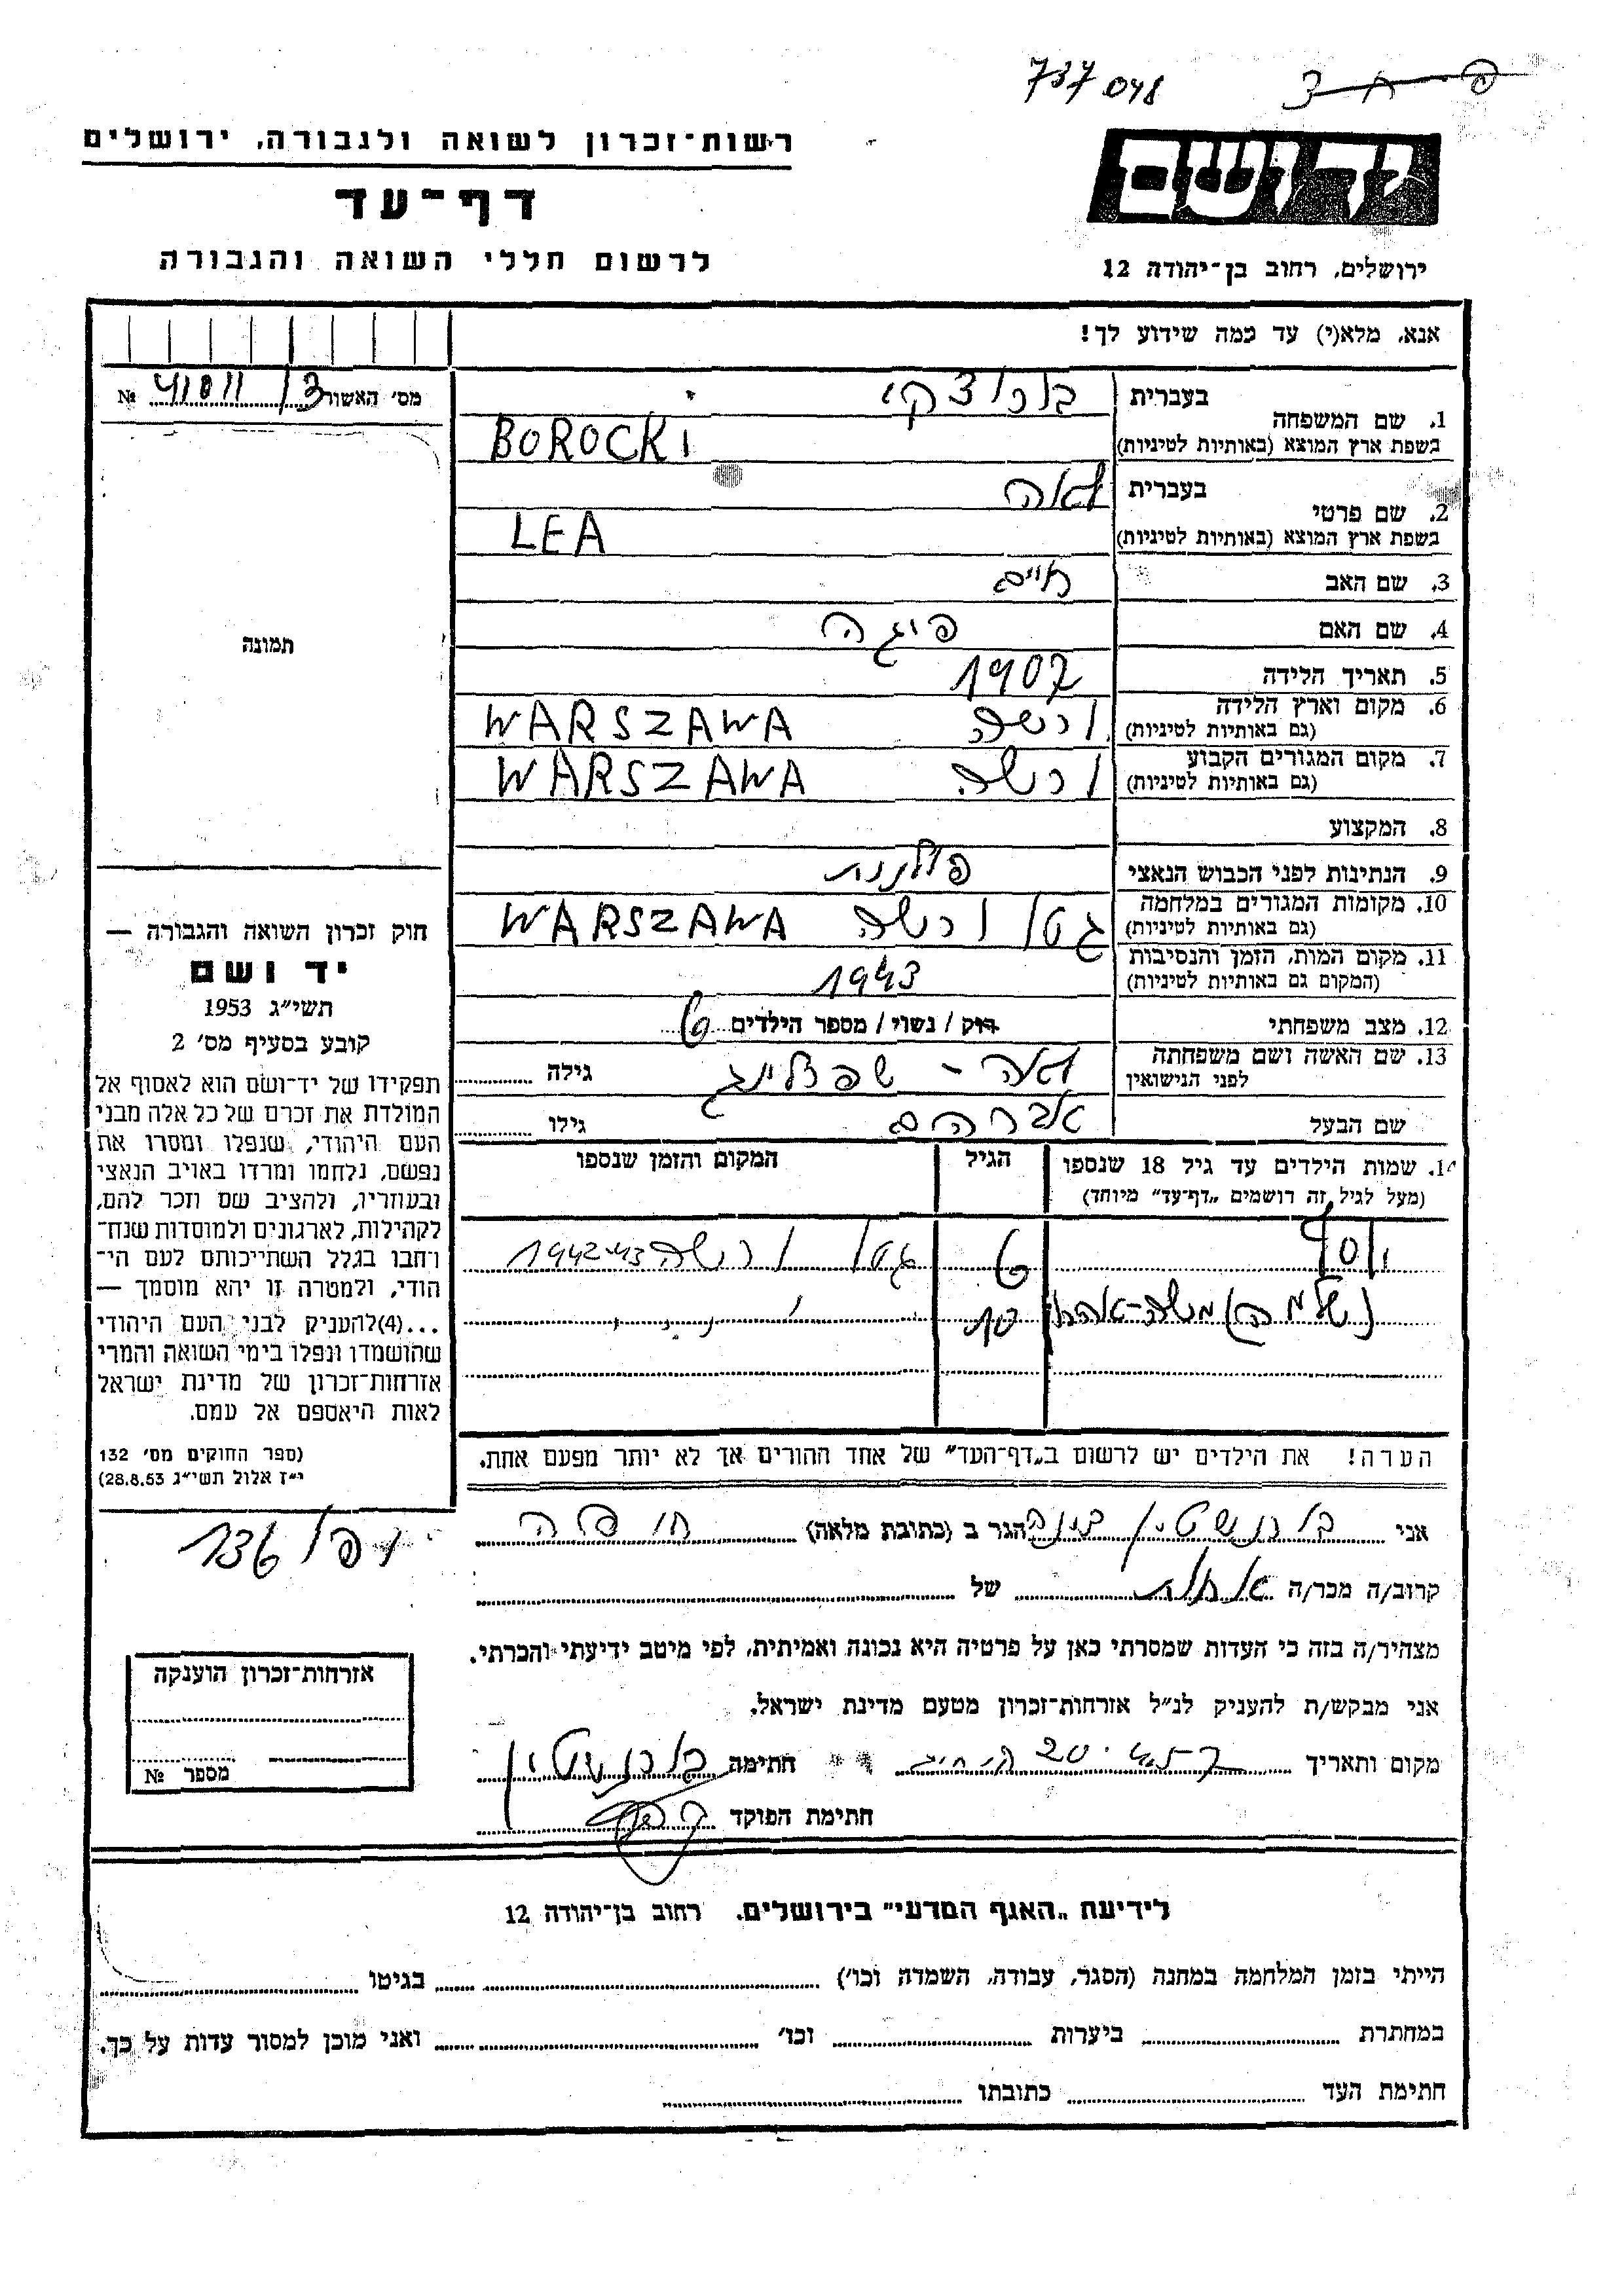 737 048
רשות־זכרון לשואה ולגבורה, ירושלים
יד ושם
דף־עד
לרשום חללי השואה והגבורה
ירושלים, רחוב בן־יהודה 12
אנא, מלא(י) עד כמה שידוע לך!
מס׳ האשור 41811/3 №
בעברית ברוצקי
1. שם המשפחה
בשפת ארץ המוצא (באותיות לטיניות) BOROCKI
בעברית לאה
2. שם פרטי
בשפת ארץ המוצא (באותיות לטיניות) LEA
3. שם האב חיים
4. שם האם פיגה
5. תאריך הלידה 1907
6. מקום וארץ הלידה
(גם באותיות לטיניות) ורשה WARSZAWA
7. מקום המגורים הקבוע
(גם באותיות לטיניות) ורשה WARSZAWA
8. המקצוע
9. הנתינות לפני הכבוש הנאצי פולנית
10. מקומות המגורים במלחמה
(גם באותיות לטיניות) גטו ורשה WARSZAWA
11. מקום המות, הזמן והנסיבות
(המקום גם באותיות לטיניות) 1943
12. מצב משפחתי רוק / נשוי / מספר הילדים
13. שם האשה ושם משפחתה
לפני הנישואין לאה - גילה
שם הבעל אברהם גילו
14. שמות הילדים עד גיל 18 שנספו
(מעל לגיל זה רושמים „דף־עד״ מיוחד)
הגיל
המקום והזמן שנספו
יוסף 6 גטו ורשה 1942-43
10
הערה! את הילדים יש לרשום ב„דף־העד״ של אחד ההורים אך לא יותר מפעם אחת.
תמונה
חוק זכרון השואה והגבורה —
יד ושם
תשי״ג 1953
קובע בסעיף מס׳ 2
תפקידו של יד־ושם הוא לאסוף אל
המולדת את זכרם של כל אלה מבני
העם היהודי, שנפלו ומסרו את
נפשם, נלחמו ומרדו באויב הנאצי
ובעוזריו, ולהציב שם וזכר להם,
לקהילות, לארגונים ולמוסדות שנח־
רחבו בגלל השתייכותם לעם הי־
הודי, ולמטרה זו יהא מוסמך —
...(4)להעניק לבני העם היהודי
שהושמדו ונפלו בימי השואה והמרי
אזרחות־זכרון של מדינת ישראל
לאות היאספם אל עמם.
(ספר החוקים מס׳ 132
י״ז אלול תשי״ג 28.8.53)
אני הגר ב (כתובת מלאה) חיפה
קרוב/ה מכר/ה אחות של
מצהיר/ה בזה כי העדות שמסרתי כאן על פרטיה היא נכונה ואמיתית, לפי מיטב ידיעתי והכרתי.
אני מבקש/ת להעניק לנ״ל אזרחות־זכרון מטעם מדינת ישראל.
מקום ותאריך חתימה
חתימת הפוקד
אזרחות־זכרון הוענקה
מספר №
לידיעת „האגף המדעי״ בירושלים. רחוב בן־יהודה 12
הייתי בזמן המלחמה במחנה (הסגר, עבודה, השמדה וכו׳) בגיטו
במחתרת ביערות וכו׳ ואני מוכן למסור עדות על כך.
חתימת העד כתובתו